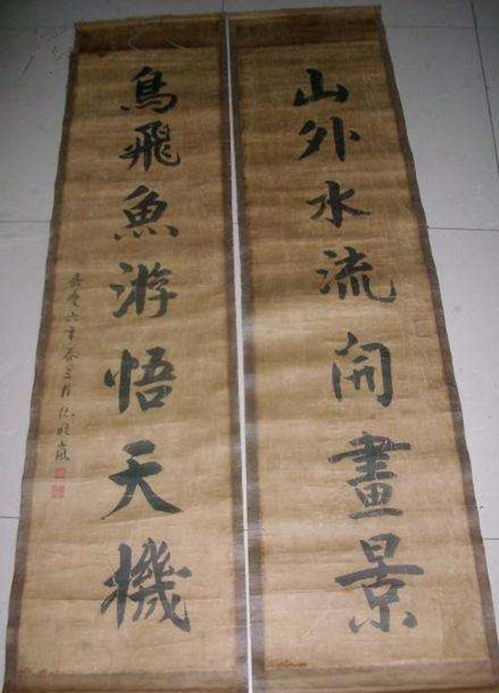 山外水流開畫景
鳥飛魚游悟天機
嘉慶六年春三月紀曉嵐